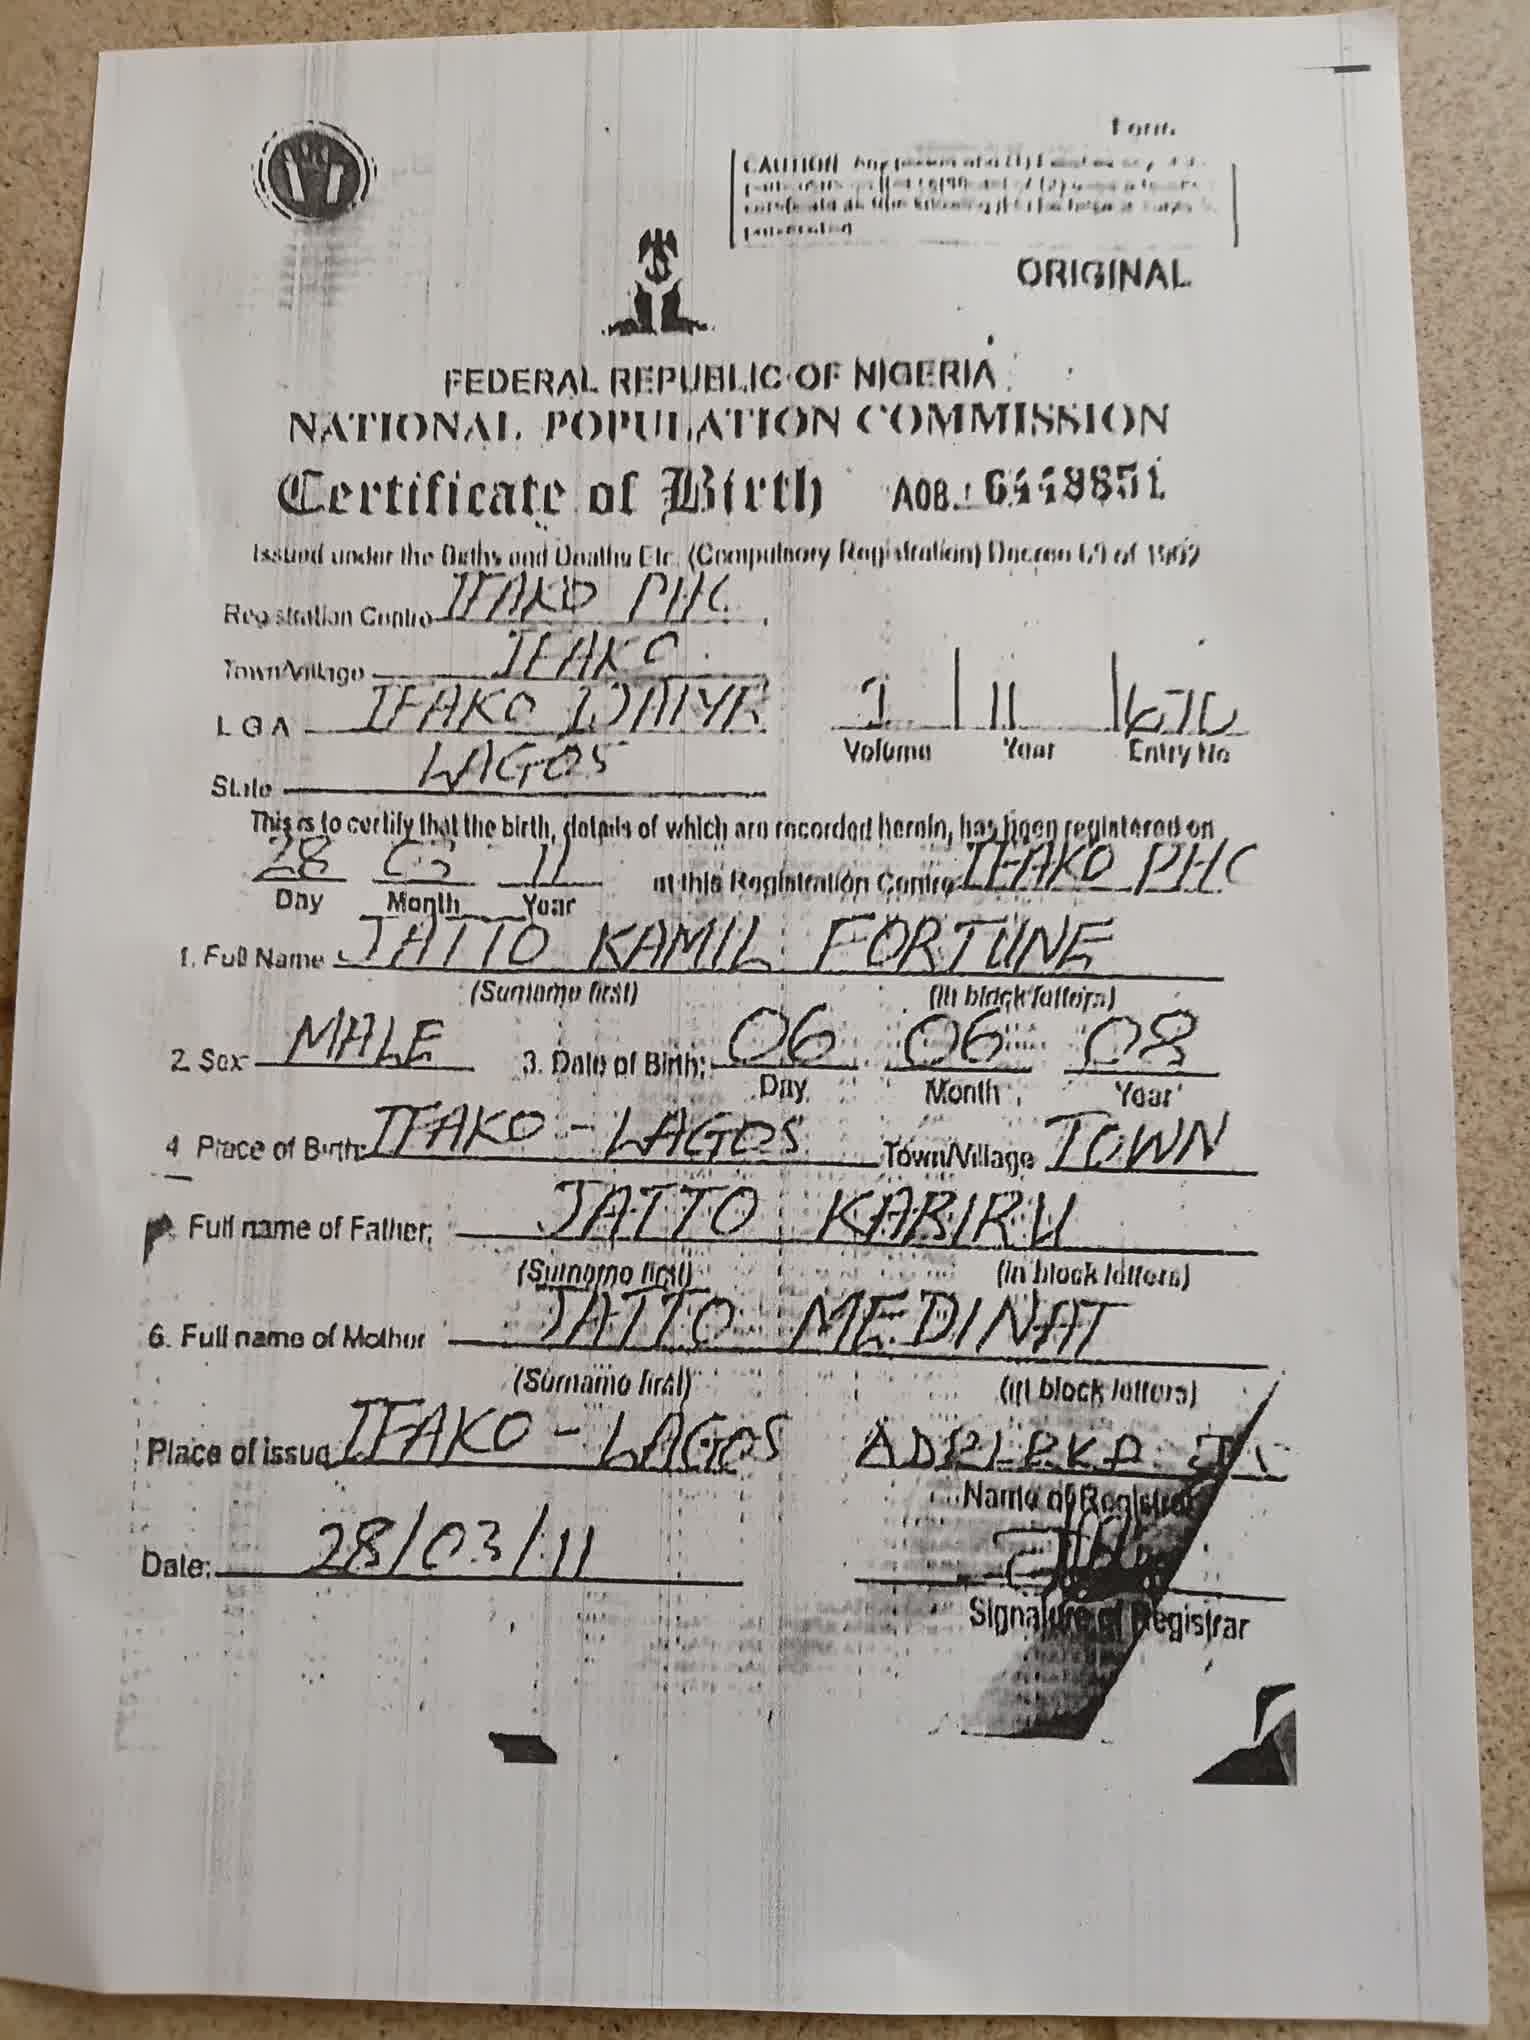 Form
CAUTION Any person who (1)
ORIGINAL
FEDERAL REPUBLIC OF NIGERIA
NATIONAL POPULATION COMMISSION
Certificate of Birth
Issued under the Births and Deaths Etc. (Compulsory Registration) Decree 69 of 1992
Registration Centre IFAKO PHC
Town/Village IFAKO
L G A IFAKO
1 11
Volume Year Entry No
State LAGOS
This is to certify that the birth, details of which are recorded herein, has been registered on
28 03 11 at this Registration Centre IFAKO PHC
Day Month Year
1. Full Name JATTO KAMIL FORTUNE
(Surname first) (in block letters)
2. Sex MALE 3. Date of Birth: 06 06 08
Day Month Year
4 Place of Birth: IFAKO - LAGOS Town/Village TOWN
Full name of Father: JATTO KABIRU
(Surname first) (in block letters)
6. Full name of Mother JATTO MEDINAT
(Surname first) (in block letters)
Place of issue IFAKO - LAGOS
Name of Registrar
Date: 28/03/11
Signature of Registrar